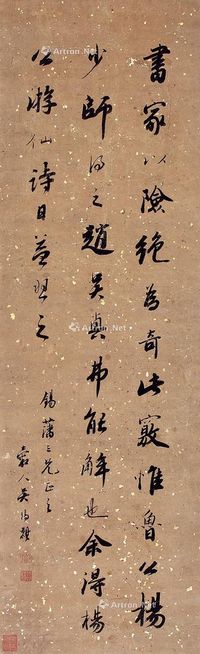 書家以險絕為奇此竅惟魯公楊
少師得之趙吳興弗能解也余得楊
公游仙詩日益習之
錫藩三兄正之
Artron.Net